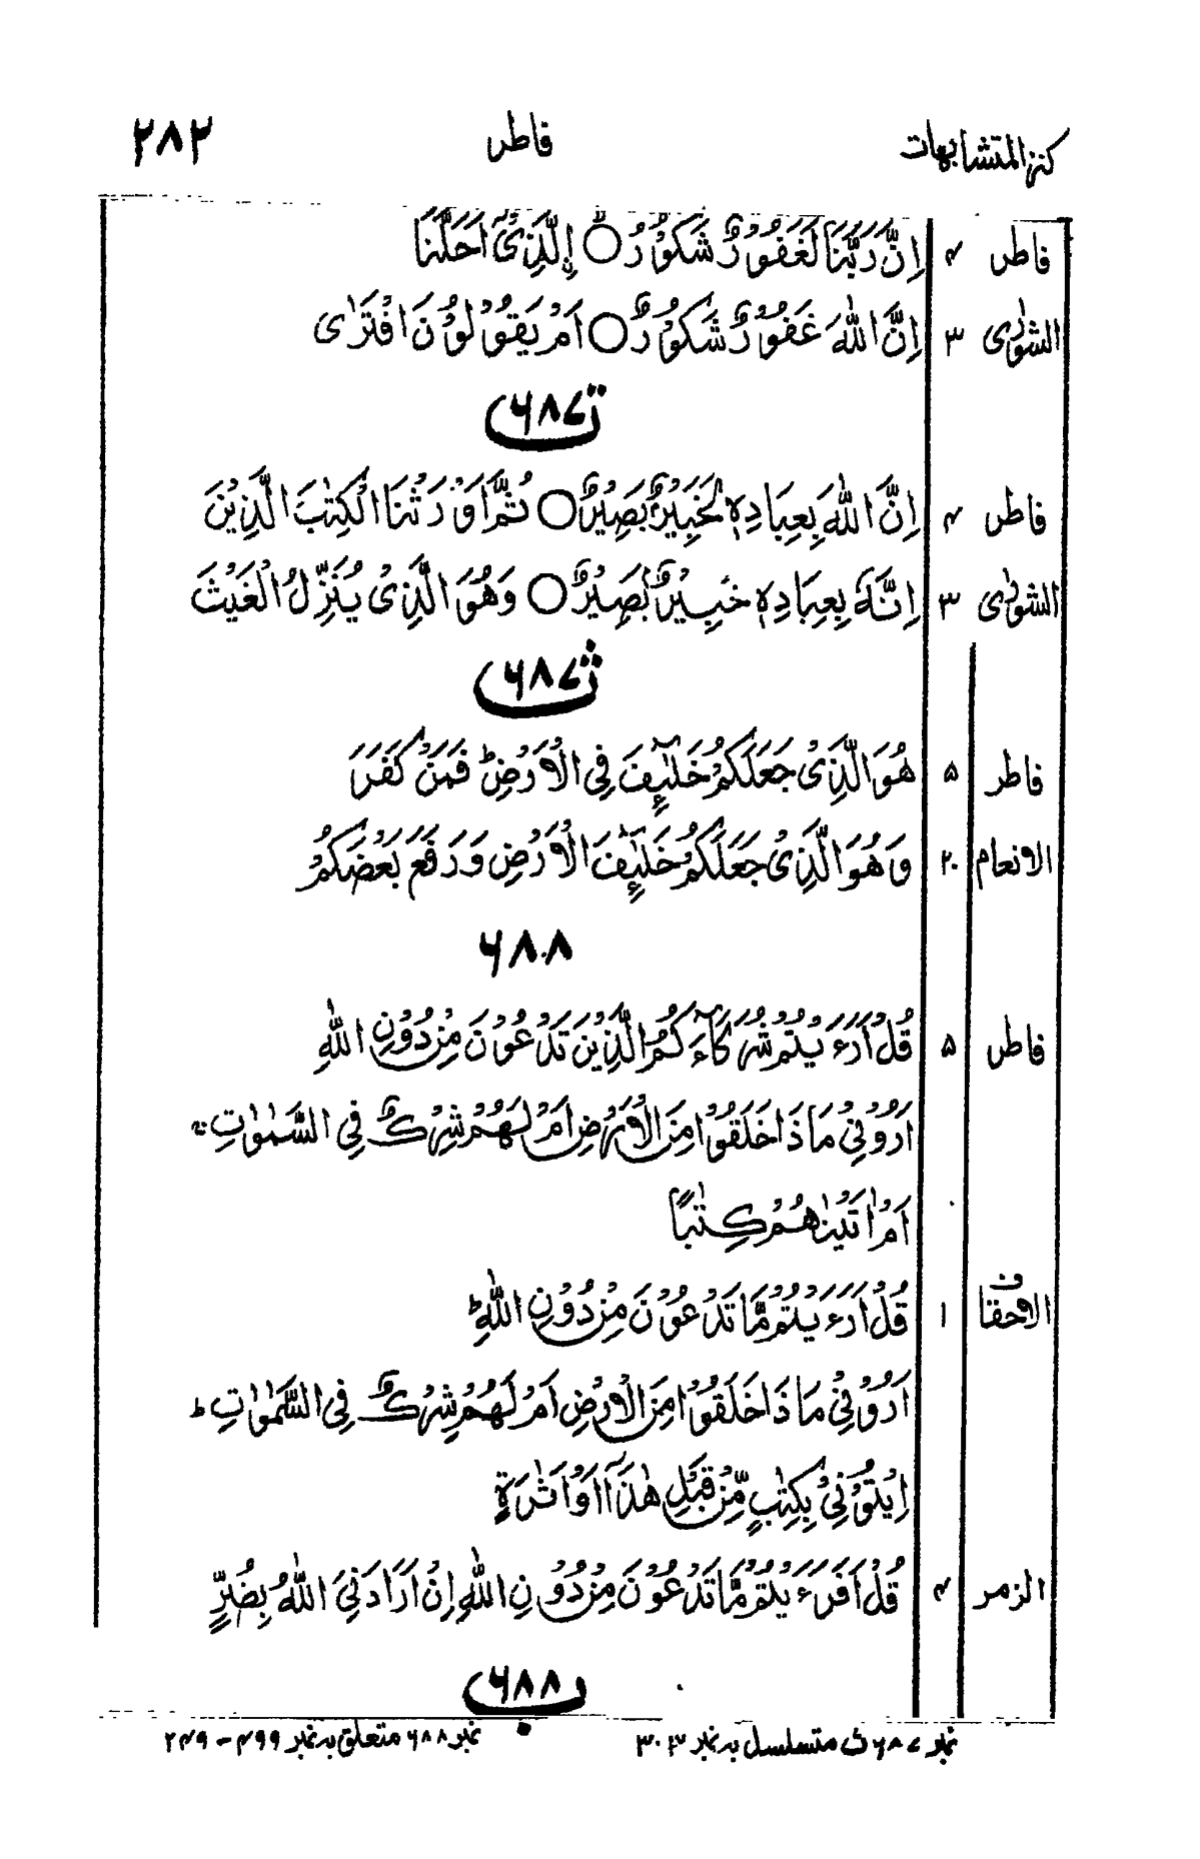 كنز المتشابهات فاطر ۲۸۲
فاطر ۴ اِنَّ رَبَّنَا لَغَفُوْرٌ شَكُوْرُ ۙ○ اِۨلَّذِیْۤ اَحَلَّنَا
الشوٰرٰی ۳ اِنَّ اللّٰهَ غَفُوْرٌ شَكُوْرٌ○ اَمْ یَقُوْلُوْنَ افْتَرٰی
۶۸۷ ت
فاطر ۴ اِنَّ اللّٰهَ بِعِبَادِهٖ لَخَبِیْرٌۢ بَصِیْرٌ○ ثُمَّ اَوْرَثْنَا الْكِتٰبَ الَّذِیْنَ
الشوٰرٰی ۳ اِنَّهٗ بِعِبَادِهٖ خَبِیْرٌۢ بَصِیْرٌ○ وَهُوَ الَّذِیْ یُنَزِّلُ الْغَیْثَ
۶۸۷ ث
فاطر ۵ هُوَ الَّذِیْ جَعَلَكُمْ خَلٰٓئِفَ فِی الْاَرْضِ ؕ فَمَنْ كَفَرَ
الانعام ۲۰ وَهُوَ الَّذِیْ جَعَلَكُمْ خَلٰٓئِفَ الْاَرْضِ وَرَفَعَ بَعْضَكُمْ
۶۸۸
فاطر ۵ قُلْ اَرَءَیْتُمْ شُرَكَآءَكُمُ الَّذِیْنَ تَدْعُوْنَ مِنْ دُوْنِ اللّٰهِ
اَرُوْنِیْ مَاذَا خَلَقُوْا مِنَ الْاَرْضِ اَمْ لَهُمْ شِرْكٌ فِی السَّمٰوٰتِ ۚ
اَمْ اٰتَیْنٰهُمْ كِتٰبًا
الاحقاف ۱ قُلْ اَرَءَیْتُمْ مَّا تَدْعُوْنَ مِنْ دُوْنِ اللّٰهِ ؕ
اَرُوْنِیْ مَاذَا خَلَقُوْا مِنَ الْاَرْضِ اَمْ لَهُمْ شِرْكٌ فِی السَّمٰوٰتِ ؕ
اِیْتُوْنِیْ بِكِتٰبٍ مِّنْ قَبْلِ هٰذَاۤ اَوْ اَثٰرَةٍ
الزمر ۴ قُلْ اَفَرَءَیْتُمْ مَّا تَدْعُوْنَ مِنْ دُوْنِ اللّٰهِ اِنْ اَرَادَنِیَ اللّٰهُ بِضُرٍّ
۶۸۸ ب
نمبر ۶۸۷ ث متسلسل بہ نمبر ۳۰۳ نمبر ۶۸۸ متعلق بہ نمبر ۴۹۹ - ۲۴۹